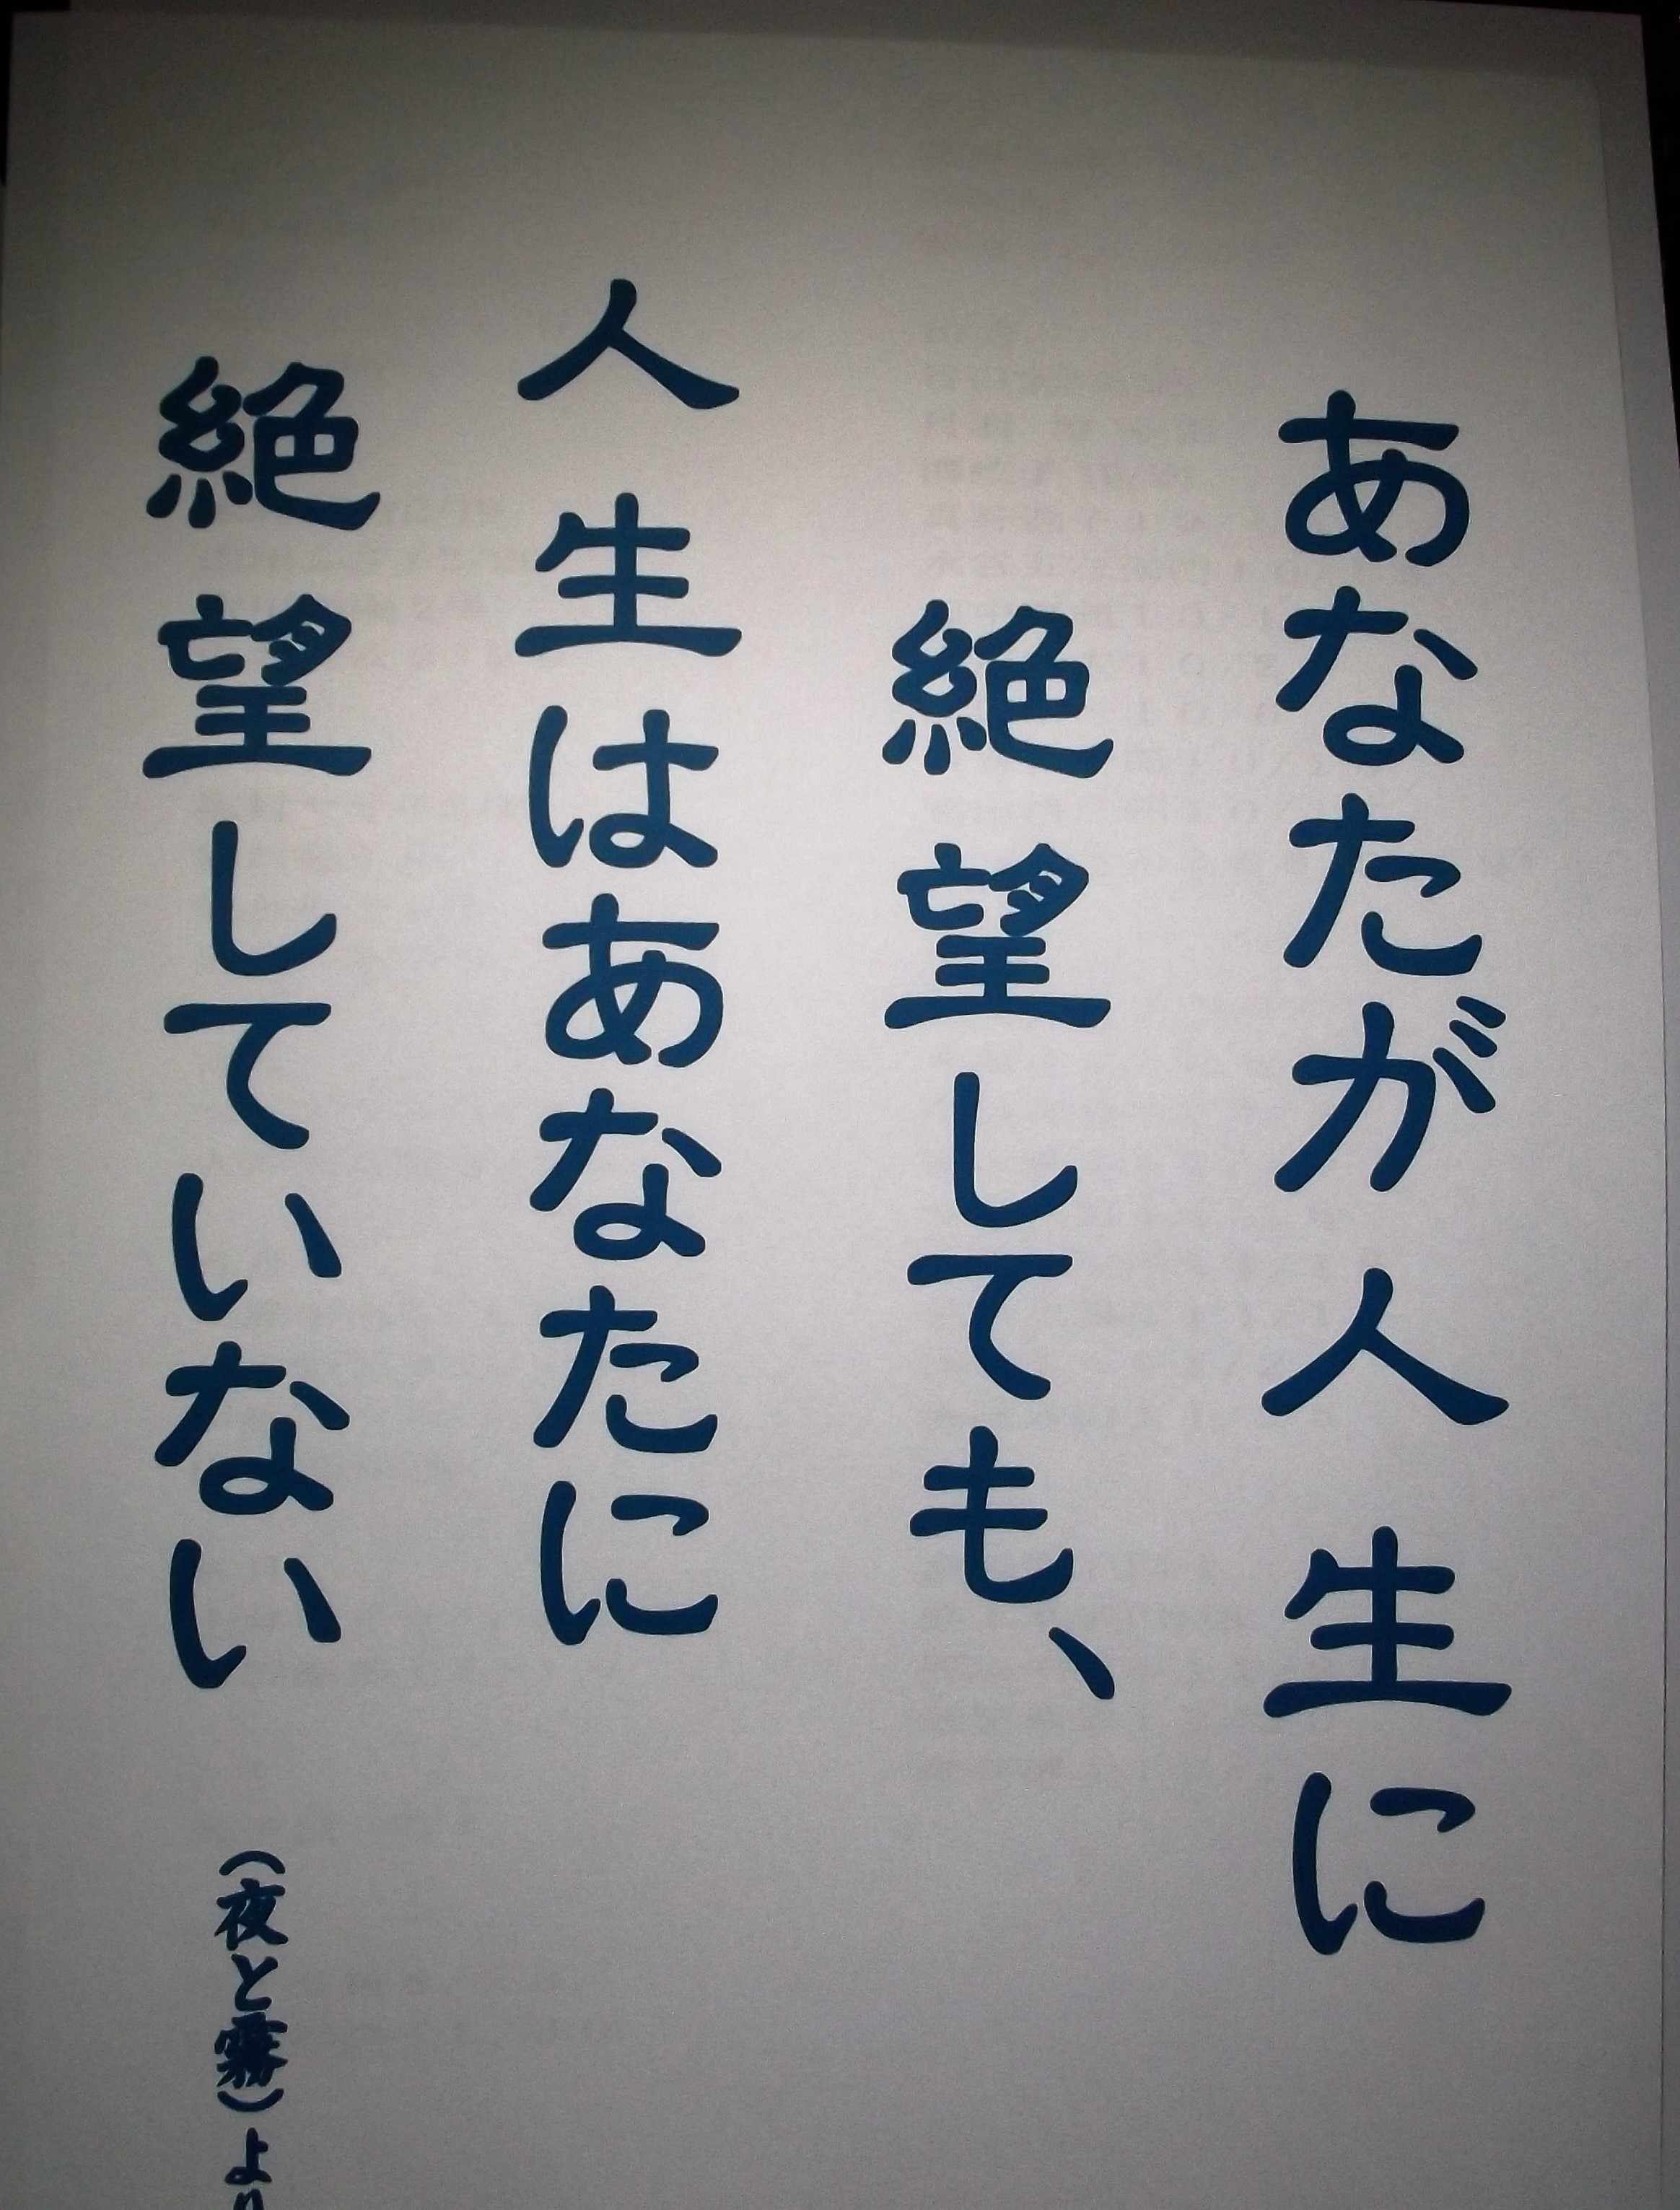 あなたが人生に
絶望しても、
人生はあなたに
絶望していない
(夜と霧)より